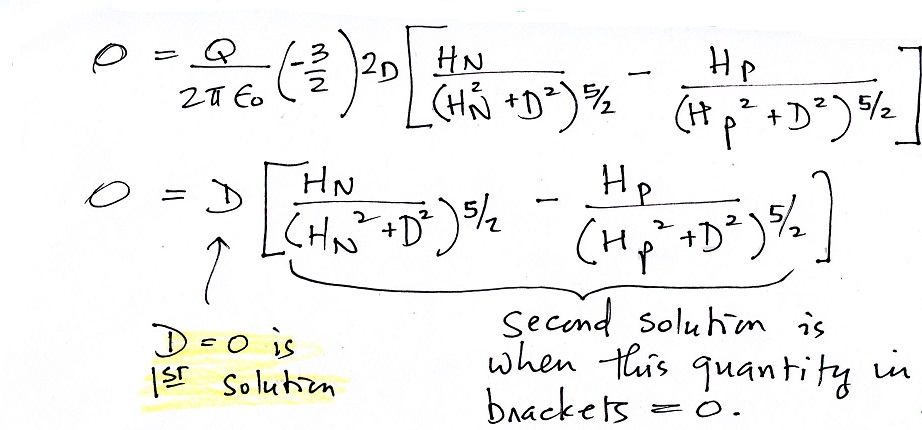 0 = Q/(2π ε₀) (-3/2) 2D [ H_N/(H_N² + D²)^5/2 - H_P/(H_P² + D²)^5/2 ]
0 = D [ H_N/(H_N² + D²)^5/2 - H_P/(H_P² + D²)^5/2 ]
D = 0 is
1ST solution
Second solution is
when this quantity in
brackets = 0.